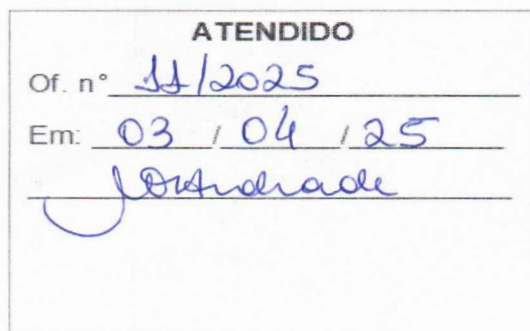 ATENDIDO
Of. n° 11/2025
Em: 03 / 04 / 25
Andrade